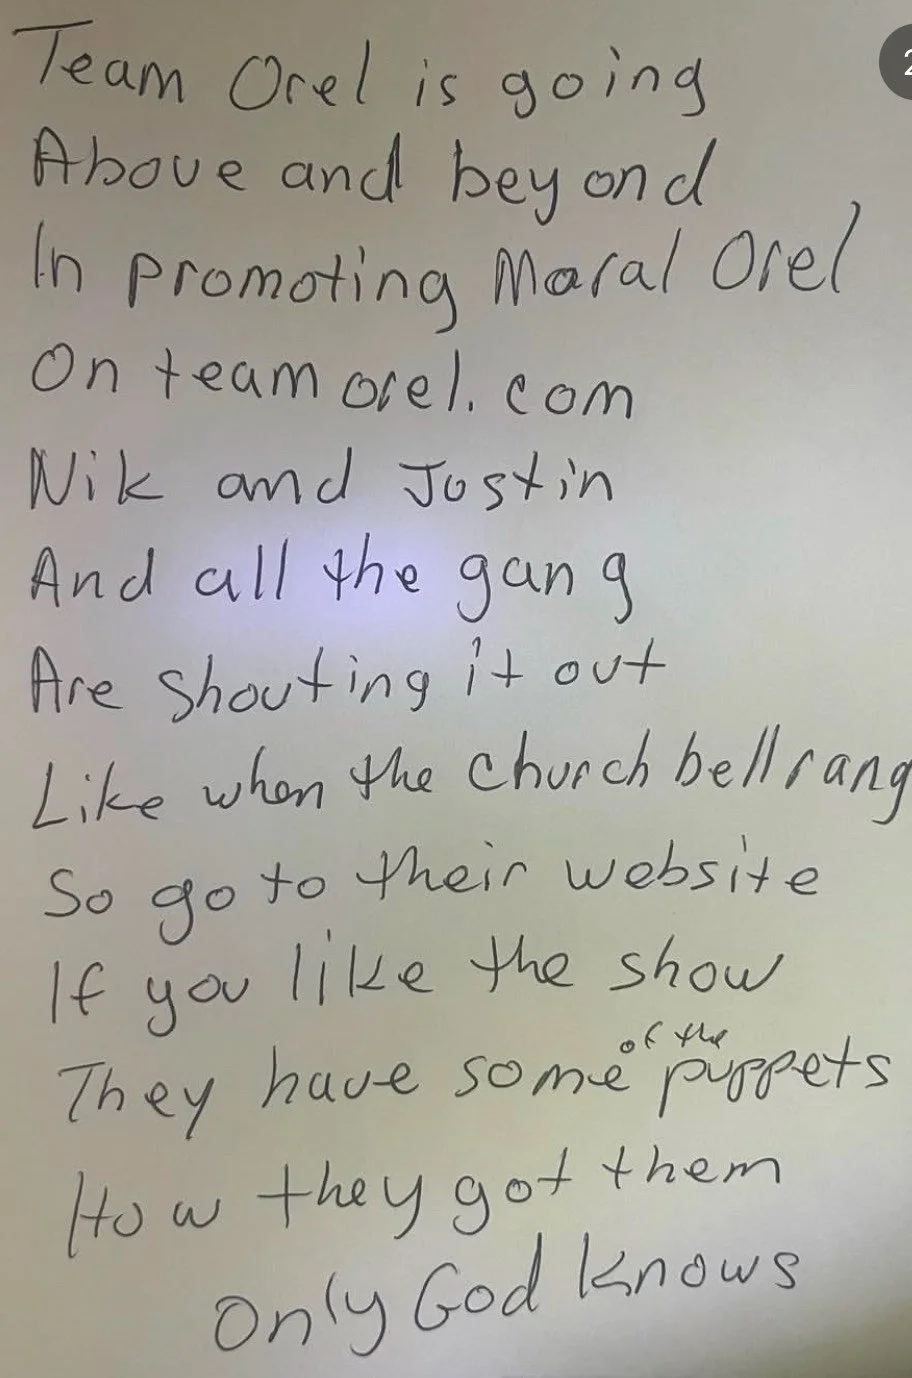 Team Orel is going
Above and beyond
In promoting Moral Orel
On teamorel.com
Nik and Justin
And all the gang
Are shouting it out
Like when the church bell rang
So go to their website
If you like the show
They have some of the puppets
How they got them
Only God knows